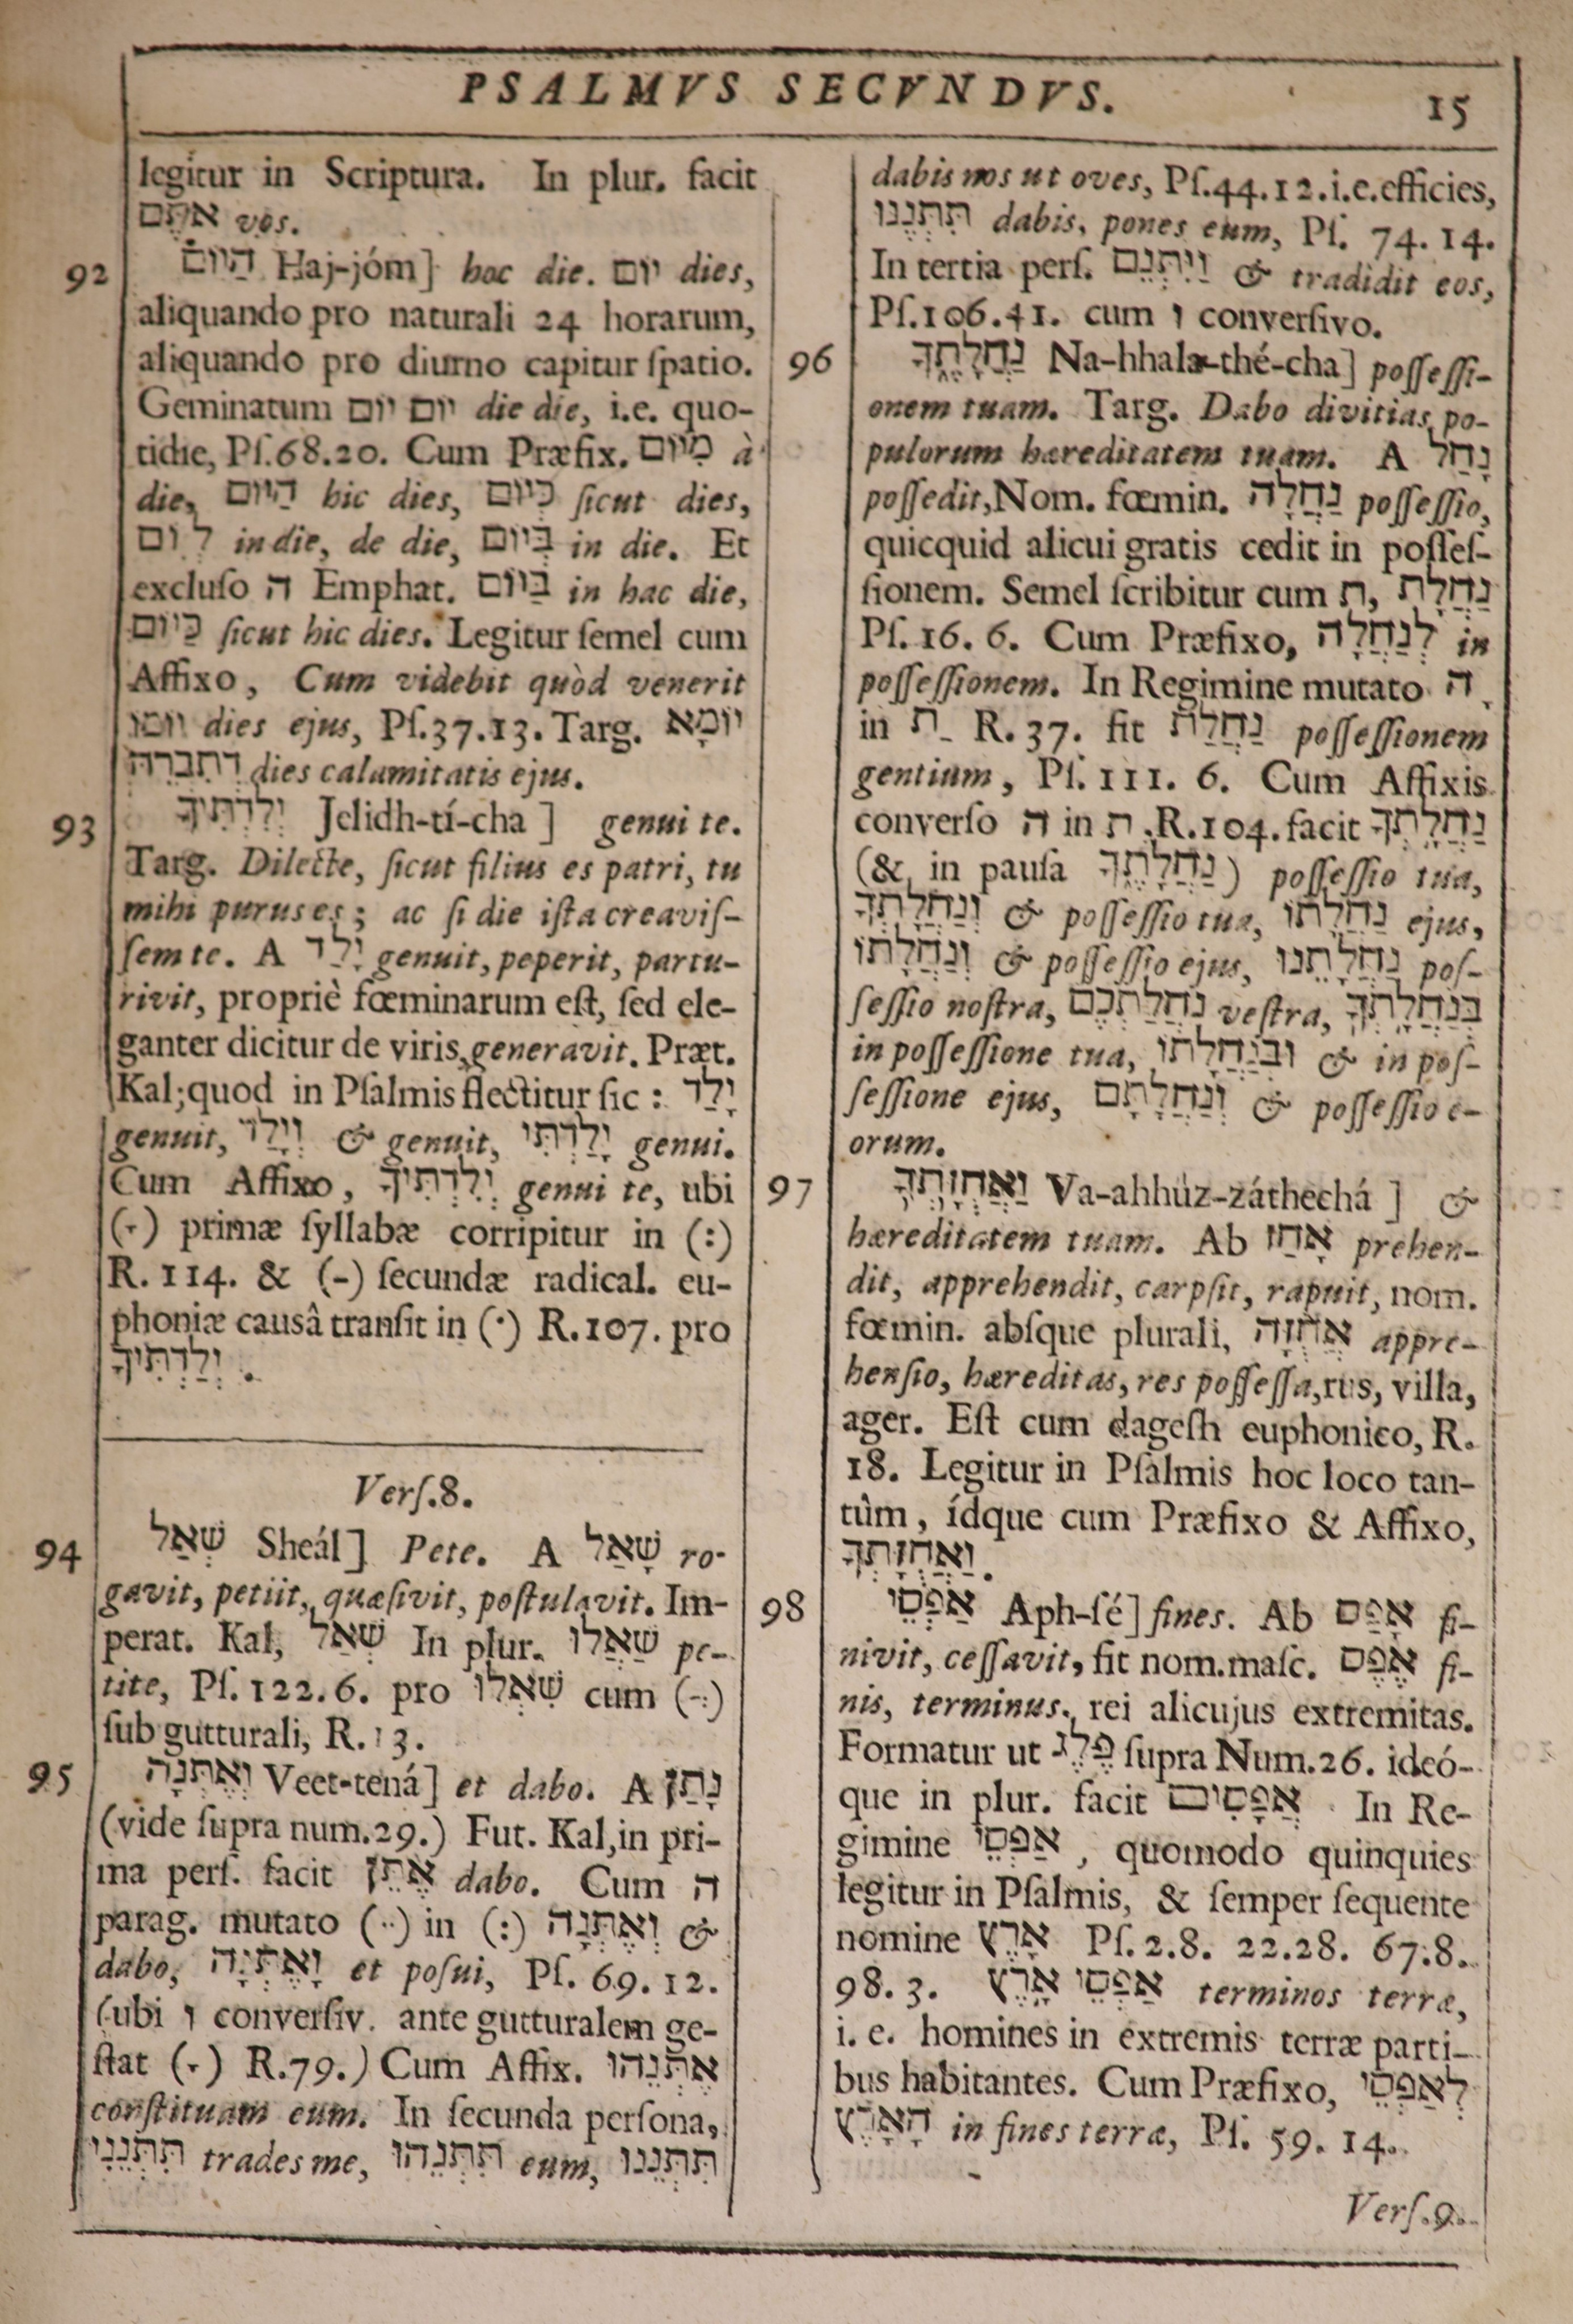 PSALMVS SECVNDVS.
15
legitur in Scriptura. In plur. facit
אַתֶּם vos.
92 הַיּוֹם Haj-jóm] hoc die. יוֹם dies,
aliquando pro naturali 24 horarum,
aliquando pro diurno capitur ſpatio.
Geminatum יוֹם יוֹם die die, i.e. quo-
tidie, Pſ.68.20. Cum Præfix. מִיּוֹם à
die, הַיּוֹם hic dies, כְּיוֹם ſicut dies,
indie, de die, בְּיוֹם in die. Et
excluſo ה Emphat. בַּיּוֹם in hac die,
כַּיּוֹם ſicut hic dies. Legitur ſemel cum
Affixo, Cum videbit quòd venerit
יוֹמוֹ dies ejus, Pſ.37.13. Targ. יוֹמָא
דְתִבְרֵהּ dies calamitatis ejus.
93 יְלִדְתִּיךָ Jelidh-tí-cha] genui te.
Targ. Dilecte, ſicut filius es patri, tu
mihi purus es; ac ſi die iſta creaviſ-
ſem te. A יָלַד genuit, peperit, partu-
rivit, propriè fœminarum eſt, ſed ele-
ganter dicitur de viris, generavit. Præt.
Kal; quod in Pſalmis flectitur ſic: יָלַד
genuit, וְיָלַד & genuit, יָלַדְתִּי genui.
Cum Affixo, יְלִדְתִּיךָ genui te, ubi
(ָ) primæ ſyllabæ corripitur in (:)
R. 114. & (-) ſecundæ radical. eu-
phoniæ causâ tranſit in (·) R.107. pro
יְלַדְתִּיךָ.
Verſ.8.
94 שְׁאַל Sheál] Pete. A שָׁאַל ro-
gavit, petiit, quæſivit, poſtulavit. Im-
perat. Kal, שְׁאַל In plur. שַׁאֲלוּ pe-
tite, Pſ. 122.6. pro שִׁאְלוּ cum (-:)
ſub gutturali, R.13.
95 וְאֶתְּנָה Veet-tená] et dabo. A נָתַן
(vide ſupra num.29.) Fut. Kal, in pri-
ma perſ. facit אֶתֵּן dabo. Cum ה
parag. mutato (··) in (:) וְאֶתְּנָה &
dabo, וָאֶתְּנָה et poſui, Pſ. 69. 12.
(ubi ו converſiv. ante gutturalem ge-
ſtat (ָ) R.79.) Cum Affix. אֶתְּנֵהוּ
conſtituam eum. In ſecunda perſona,
תִּתְּנֵנִי trades me, תִּתְּנֵהוּ eum, תִּתְּנֵנוּ
dabis nos ut oves, Pſ.44.12.i.e.efficies,
תִּתְּנֶנּוּ dabis, pones eum, Pſ. 74. 14.
In tertia perſ. וַיִּתְּנֵם & tradidit eos,
Pſ.106.41. cum ו converſivo.
96 נַחֲלָתֶךָ Na-hhala-thé-cha] poſſeſſi-
onem tuam. Targ. Dabo divitias po-
pulorum hæreditatem tuam. A נָחַל
poſſedit, Nom. fœmin. נַחֲלָה poſſeſſio,
quicquid alicui gratis cedit in poſſeſ-
ſionem. Semel ſcribitur cum ת, נַחֲלָת
Pſ. 16. 6. Cum Præfixo, לְנַחֲלָה in
poſſeſſionem. In Regimine mutato ָה
in ַת R. 37. fit נַחֲלַת poſſeſſionem
gentium, Pſ. 111. 6. Cum Affixis
converſo ה in ת, R.104. facit נַחֲלָתְךָ
(& in pauſa נַחֲלָתֶךָ) poſſeſſio tua,
וְנַחֲלָתְךָ & poſſeſſio tua, נַחֲלָתוֹ ejus,
וְנַחֲלָתוֹ & poſſeſſio ejus, נַחֲלָתֵנוּ poſ-
ſeſſio noſtra, נַחֲלַתְכֶם veſtra, בְּנַחֲלָתְךָ
in poſſeſſione tua, וּבְנַחֲלָתוֹ & in poſ-
ſeſſione ejus, וְנַחֲלָתָם & poſſeſſio e-
orum.
97 וַאֲחֻזָּתְךָ Va-ahhúz-záthechá] &
hæreditatem tuam. Ab אָחַז prehen-
dit, apprehendit, carpſit, rapuit, nom.
fœmin. abſque plurali, אֲחֻזָּה appre-
henſio, hæreditas, res poſſeſſa, rus, villa,
ager. Eſt cum dageſh euphonico, R.
18. Legitur in Pſalmis hoc loco tan-
tùm, ídque cum Præfixo & Affixo,
וַאֲחֻזָּתְךָ.
98 אַפְסֵי Aph-ſé] fines. Ab אָפַס fi-
nivit, ceſſavit, fit nom.maſc. אֶפֶס fi-
nis, terminus, rei alicujus extremitas.
Formatur ut פֶּלֶג ſupra Num.26. ideó-
que in plur. facit אֲפָסִים. In Re-
gimine אַפְסֵי, quomodo quinquies
legitur in Pſalmis, & ſemper ſequente
nomine אָרֶץ Pſ.2.8. 22.28. 67.8.
98.3. אַפְסֵי אָרֶץ terminos terræ,
i. e. homines in extremis terræ parti-
bus habitantes. Cum Præfixo, לְאַפְסֵי
הָאָרֶץ in fines terræ, Pſ. 59. 14.
Verſ.9.